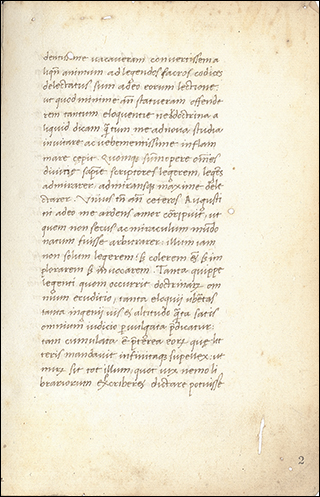 dentis me vacaveram convertissem a
liqn̄ animum ad legendos sacros codices
delectatus sum adeo eorum lectione
ut quod minime añ statueram offende
rem tantum eloquentie
liquid dicam q̄tum me ad nova studia
invitare ac vehementissime inflam
mare cepit. Quomqȝ summopere om̄es
divinę sapiē scriptores legerem, legēs
admirarer, admiransqȝ maxime dele
ctarer. Unius tn̄ añ ceteros Augusti
ni adeo me ardens amor corripuit, ut
quem non secus ac miraculum mūdo
natum fuisse arbitrarer: illum iam
non solum legerem: sȝ colerem: sȝ im
plorarem sȝ invocarem. Tanta quippe
legenti quem occurrit doctrinarꝝ om
nium eruditio, tanta eloquij ubertas
tanta ingenij vis et altitudo q̄ta satis
omnium iudicio pervulgata p̄dicatur:
tam cumulata ē p̄terea eorꝝ quę lit
teris mandavit infinitaqȝ supellex: ut
mirꝝ sit tot illum, quot vix nemo li
brariorum exscriberes dictare potuisse
2